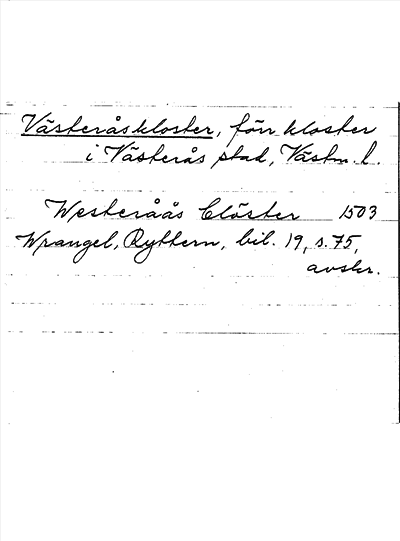 Västeråskloster, förr kloster
i Västerås stad, Västm. l.
Westeråås Clöster 1503
Wrangel, Ryttern, bil. 19, s. 75,
avskr.